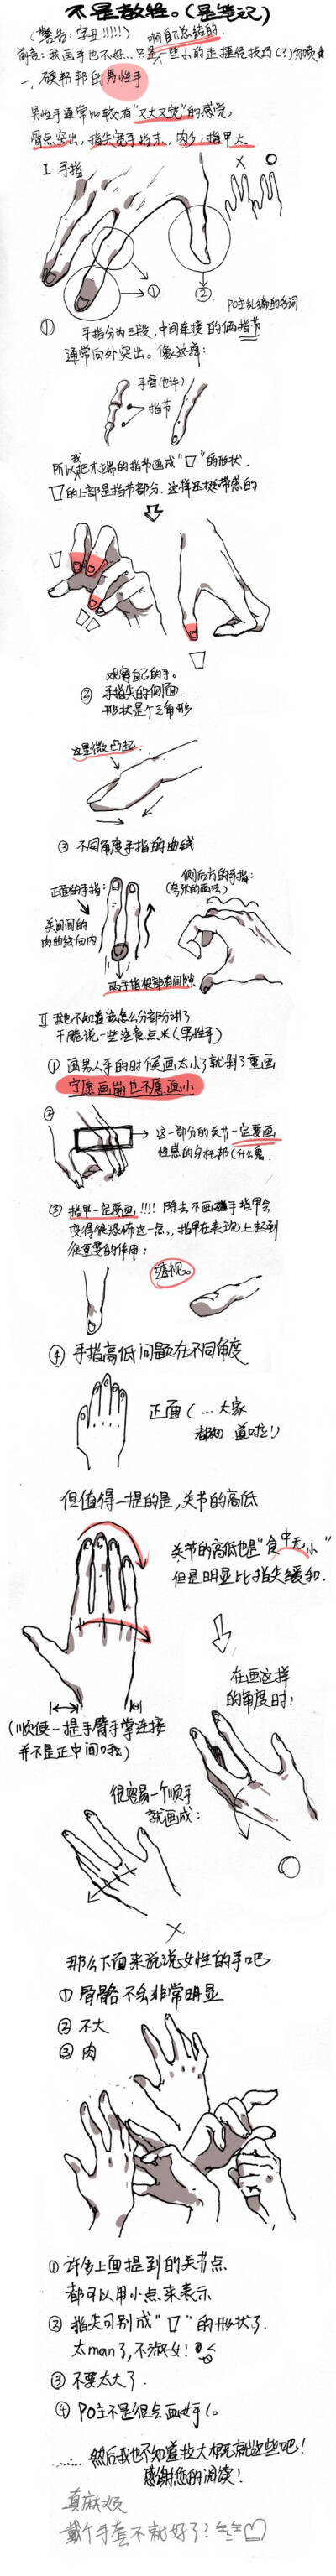 不是教程。(是笔记)
(警告:字丑!!!!!) 啊自己总结的.
前言:我画手也不好...只是一些小的走捷径技巧(?)勿喷★
一、硬邦邦的男性手
男性手通常比较有“又大又宽”的感觉
骨点突出,指尖宽手指末,肉多,指甲大
I 手指
× ○
① ②
PO主乱编的名词
① 手指分为三段,中间连接的俩指节
通常向外突出。像这样:
手骨(也许)
指节
所以我把末端的指节画成“▽”的形状.
▽的上部是指节部分.这样还挺带感的
观察自己的手。
② 手指尖的侧面.
形状是个三角形
这里微凸起.
③ 不同角度手指的曲线
正面的手指:
关节间的
内曲线向内
侧后方的手指:
(夸张的画法)
两手指根部有间隙
II 我也不知道该怎么分部分讲了
干脆说一些注意点*(男性手)
① 画男人手的时候画太小了就别了重画
宁愿画崩也不愿画小
②
这一部分的关节一定要画
性感的分托邦(什么鬼
③ 指甲一定要画!!!! 除去不画指甲会
变得很恐怖这一点,指甲在表现上起到
很重要的作用:
透视。
④ 手指高低问题在不同角度
正面(...大家
都知道啦!)
但值得一提的是,关节的高低
关节的高低也是“食中无小”
但是明显比指尖缓和.
(顺便一提手臂手掌连接
并不是正中间哦)
在画这样
的角度时:
很容易一个顺手
就画成:
○
×
那么下面来说说女性的手吧
① 骨骼不会非常明显
② 不大
③ 肉
① 许多上面提到的关节点
都可以用小点来表示
② 指尖可别成“▽”的形状了.
太man了,不淑女!
③ 不要太大了.
④ PO主不是很会画女手(。
...... 然后我也不知道拉大概就这些吧!
感谢您的阅读!
真麻烦
戴个手套不就好了?